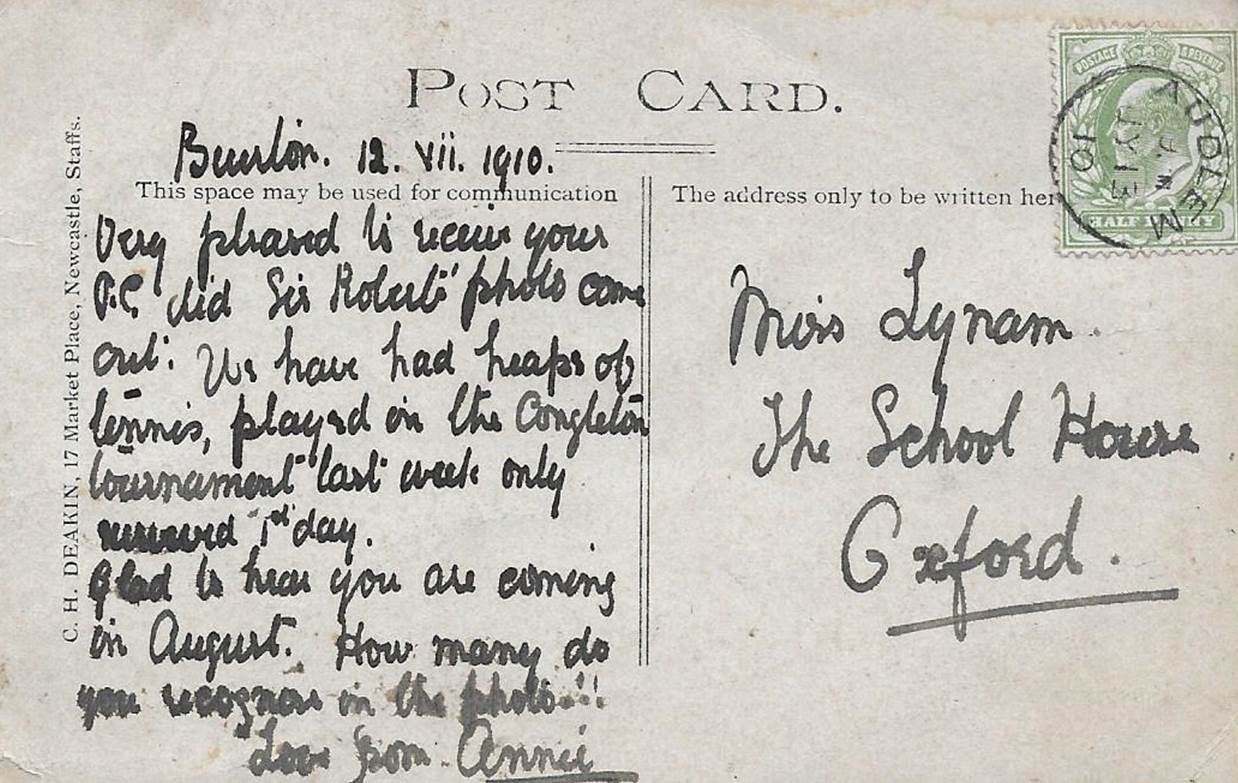 POST CARD.
Buerton. 12. VII. 1910.
This space may be used for communication
The address only to be written her
Very pleased to receive your
P.C. did Sir Roberts' photo come
out. We have had heaps of
tennis, played in the Congleton
tournament last week only
1st day.
Glad to hear you are coming
in August. How many do
you recognise in the photo!!!
Love from Annie
Miss Lynam.
The School House
Oxford.
C. H. DEAKIN, 17 Market Place, Newcastle, Staffs.
POSTAGE & REVENUE
HALF PENNY
AUDLEM
JY 13
10